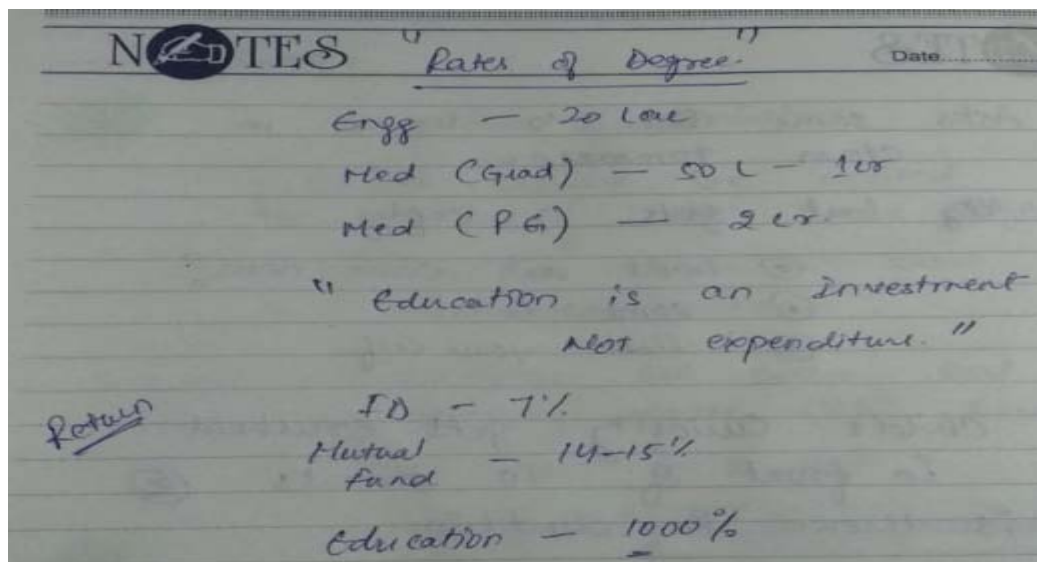 NOTES "Rates of Degree." Date..............
Engg — 20 Lac
Med (Grad) — 50 L — 1cr
Med (PG) — 2 cr.
" Education is an Investment
Not expenditure. "
Return
FD — 7%
Mutual fund — 14-15%
Education — 1000%